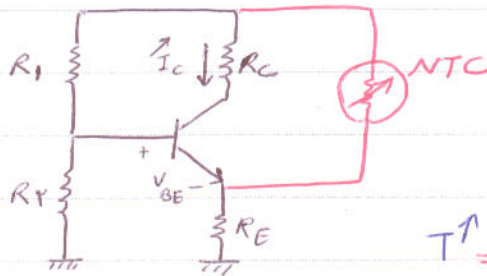 R1
Ic
Rc
NTC
R2
+
VBE
-
RE
T↑